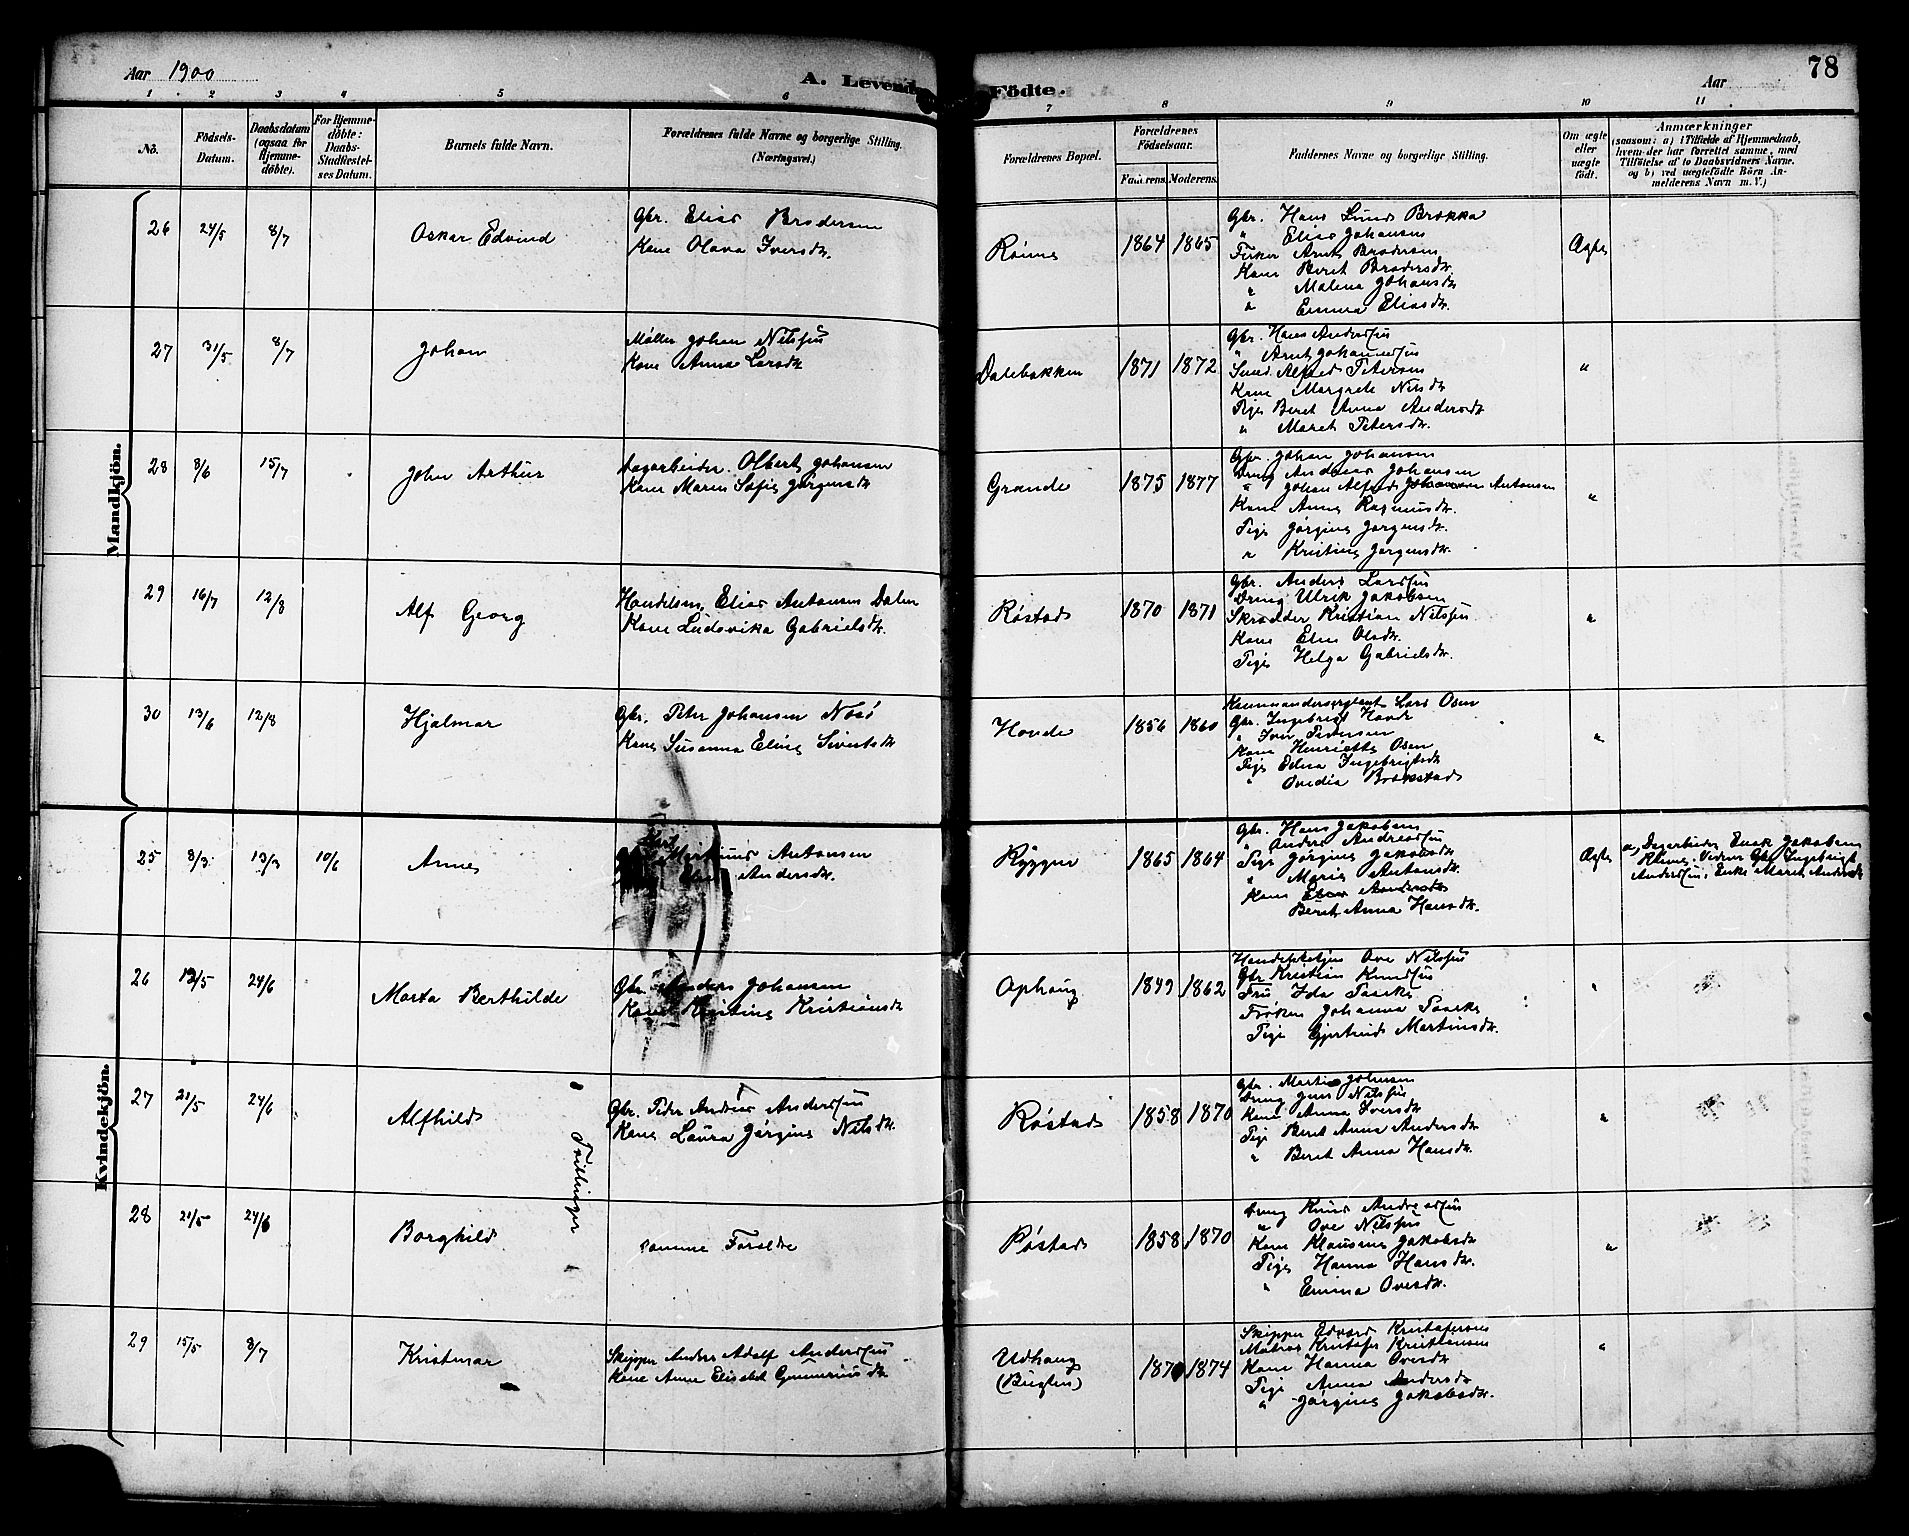 Aar 1900
A. Levende
Födte.
Aar
78
1 2 3 4 5 6 7 8 9 10 11
No.
Födsels-Datum.
Daabsdatum (ogsaa for Hjemmedöbte).
For Hjemmedöbte: Daabs-Stadfæstelses Datum.
Barnets fulde Navn.
Forældrenes fulde Navne og borgerlige Stilling. (Næringsvei.)
Forældrenes Bopæl.
Forældrenes Födselsaar.
Faderens. Moderens.
Faddernes Navne og borgerlige Stilling.
Om ægte eller uægte födt.
Anmærkninger
(saasom: a) i Tilfælde af Hjemmedaab, hvem der har forrettet samme, med Tilföielse af to Daabsvidners Navne, og b) ved uægtefödte Börn Anmelderens Navn m. V.)
Mandkjön.
26 24/5 8/7 Oskar Edvind
Gbr. Elias Brodersen
Kone Olava Iversdr.
1864 1865
Gbr. Hans Lund Brekka
" Elias Johansen
Fisker Arnt Brodersen
Kone Beret Brodersdr.
" Malena Johansdr.
" Emma Eliasdr.
Ægte
27 31/5 8/7 Johan
Møller Johan Nilssen
Kone Anna Larsdr.
Dalebakken 1871 1872
Gbr. Hans Anderssen
" Arnt Johannessen
Smed. Alfred Petersen
Kone Margrete Nilsdr.
Pige Beret Anna Andersdr.
" Maret Petersdr.
"
28 8/6 15/7 John Arthur
Dagarbeider. Olbert Johansen
Kone Maren Sofie Jørgensdr.
Grande 1875 1877
Gbr. Johan Johansen
Dreng Andreas Johansen
" Johan Alfred Johansen Antonsen
Kone Anne Rasmusdr.
Pige Jørgine Jørgensdr.
" Kristine Jørgensdr.
"
29 16/7 12/8 Alf Georg
Handelsm. Elias Antonsen Dalen
Kone Ludovika Gabrielsdr.
Røstad 1870 1871
Gbr. Anders Larssen
Dreng Ulrik Jakobsen
Skrædder Kristian Nilssen
Kone Elen Olsdr.
Pige Helga Gabrielsdr.
"
30 13/6 12/8 Hjalmar
Gbr. Peter Johansen Nesø
Kone Susanna Eline Sivertsdr.
Hovde 1856 1860
Kommandersergeant Lars Osen
Gbr. Ingebrigt Hovde
" Iver Pedersen
Kone Henriette Osen
Pige Edna Ingebrigtsdr.
" Ovedia Brækstad
"
Kvindekjön.
25 8/3 13/3 10/6 Anne
Martinus Antonsen
Andersdr.
Ryggen 1865 1864
Gbr. Hans Jakobsen
" Anders Andreassen
Pige Jørgine Jakobsdr.
" Marie Antonsdr.
Kone Elen Andersdr.
Beret Anna Hansdr.
Ægte
a, Dagarbeider Enok Jakobsen
Vidner Gbr. Ingebrigt
Anderssen, Enke Maret Andersdr.
26 12/5 24/6 Marta Berthilde
Gbr. Anders Johansen
Kone Kristine Kristiansdr.
Ophaug 1849 1862
Ove Nilssen
Gbr. Kristian Knudsen
Fru Ida Paaske
Frøken Johanna Paaske
Pige Gjertrud Martinsdr.
"
27 21/5 24/6 Alfhild
Tvillinger
Gbr. Peder Andreas Anderssen
Kone Laura Jørgine Nilsdr.
Røstad 1858 1870
Gbr. Martin Johnsen
Dreng Nilssen
Kone Anna Iversdr.
Pige Beret Anna Andersdr.
" Beret Anna Hansdr.
"
28 21/5 24/6 Borghild
samme Foreldre
Røstad 1858 1870
Dreng Knud Andreassen
" Ove Nilssen
Kone Klausine Jakobsdr.
Pige Hanna Hansdr.
" Emma Ovesdr.
"
29 15/5 8/7 Kristmar
Skipper Anders Adolf Anderssen
Kone Anne Elisabet Gunneriusdr.
Udhaug 1874
Skipper Edvard Kristofersen
Matros Kristofer Kristiansen
Kone Hanna Ovesdr.
Pige Anna Andersdr.
" Jørgine Jakobsdr.
"